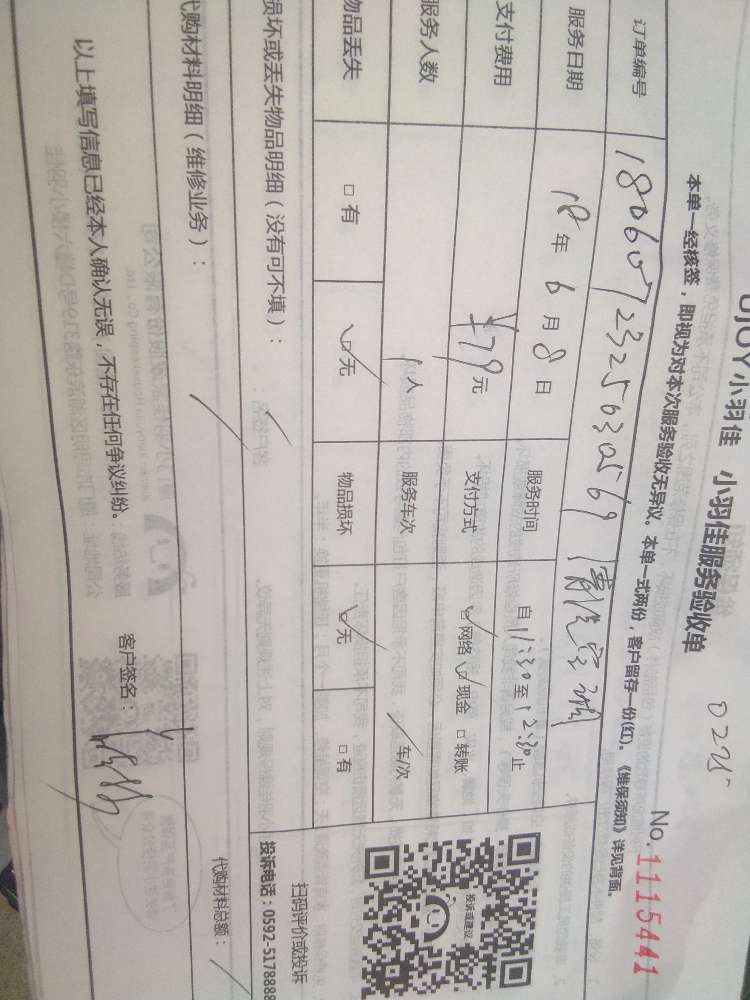 UJOY小羽佳 小羽佳服务验收单
0275
No.1115441
本单一经核签，即视为对本次服务验收无异议。本单一式两份，客户留存一份(红)。《维保须知》详见背面。
订单编号 1806072325630569
服务日期 18年6月8日 服务时间 自11:30至12:30止
支付费用 ¥79元 支付方式 ☑网络 ☑现金 □转账
服务人数 1人 服务车次 /车/次
物品丢失 □有 ☑无 物品损坏 ☑无 □有
损坏或丢失物品明细（没有可不填）：
代购材料明细（维修业务）：
投诉或建议
扫码评价或投诉
投诉电话：0592-5178888
代购材料总额：
以上填写信息已经本人确认无误，不存在任何争议纠纷。 客户签名：